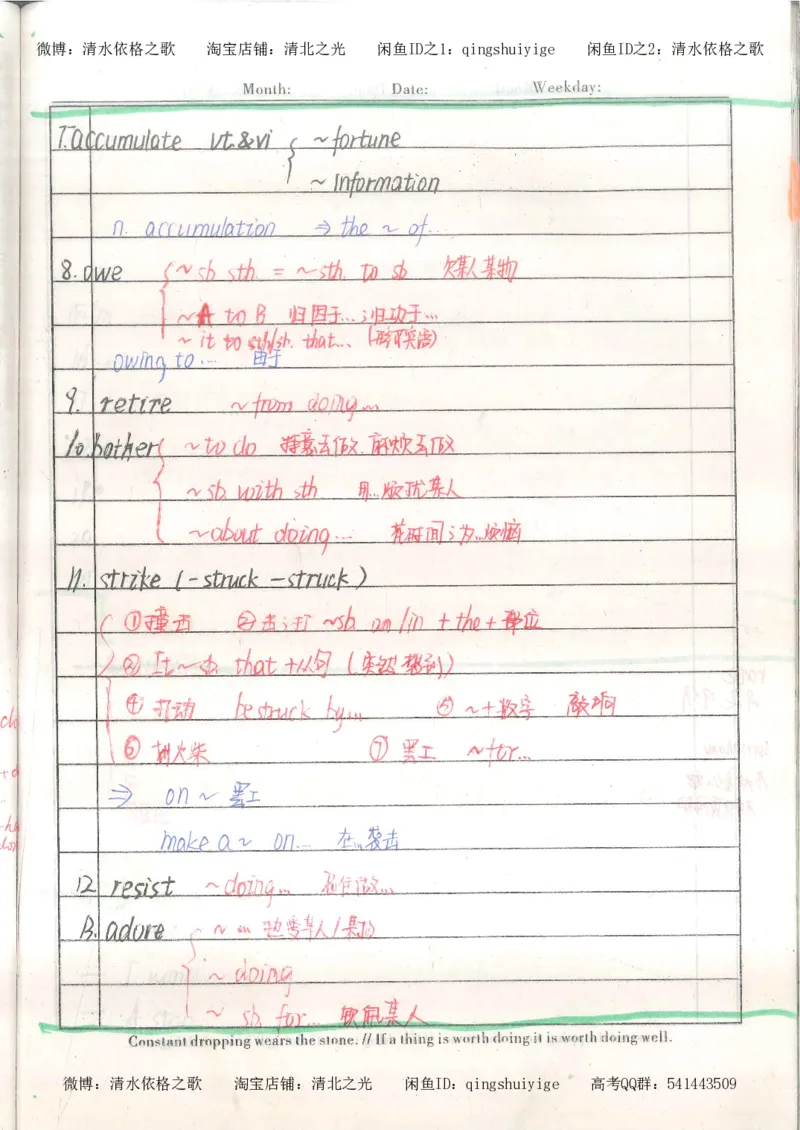 微博：清水依格之歌 淘宝店铺：清北之光 闲鱼ID之1：qingshuiyige 闲鱼ID之2：清水依格之歌
Month: Date: Weekday:
7. accumulate vt.&vi { ~ fortune
~ Information
n. accumulation ⇒ the ~ of...
8. owe { ~ sb sth. = ~ sth. to sb 欠某人某物
~ A to B 归因于...;归功于...
~ it to sth/sb. that...
owing to... 由于
9. retire ~ from doing...
10. bother { ~ to do 特意去做.麻烦去做
~ sb. with sth 用...烦扰某人
~ about doing... 花时间;为...烦恼
11. strike (-struck -struck)
①撞击 ②击;打 ~ sb. on/in + the + 部位
③ It ~ sb that +从句 (突然想到)
④ 打动 be struck by... ⑤ ~ + 数字 敲响
⑥ 划火柴 ⑦ 罢工 ~ for...
⇒ on ~ 罢工
make a ~ on... 在...袭击
12 resist ~ doing... 忍住做...
13. adore { ~ 热爱某人/某物
~ doing
~ sb for... 钦佩某人
Constant dropping wears the stone. // If a thing is worth doing it is worth doing well.
微博：清水依格之歌 淘宝店铺：清北之光 闲鱼ID：qingshuiyige 高考QQ群：541443509